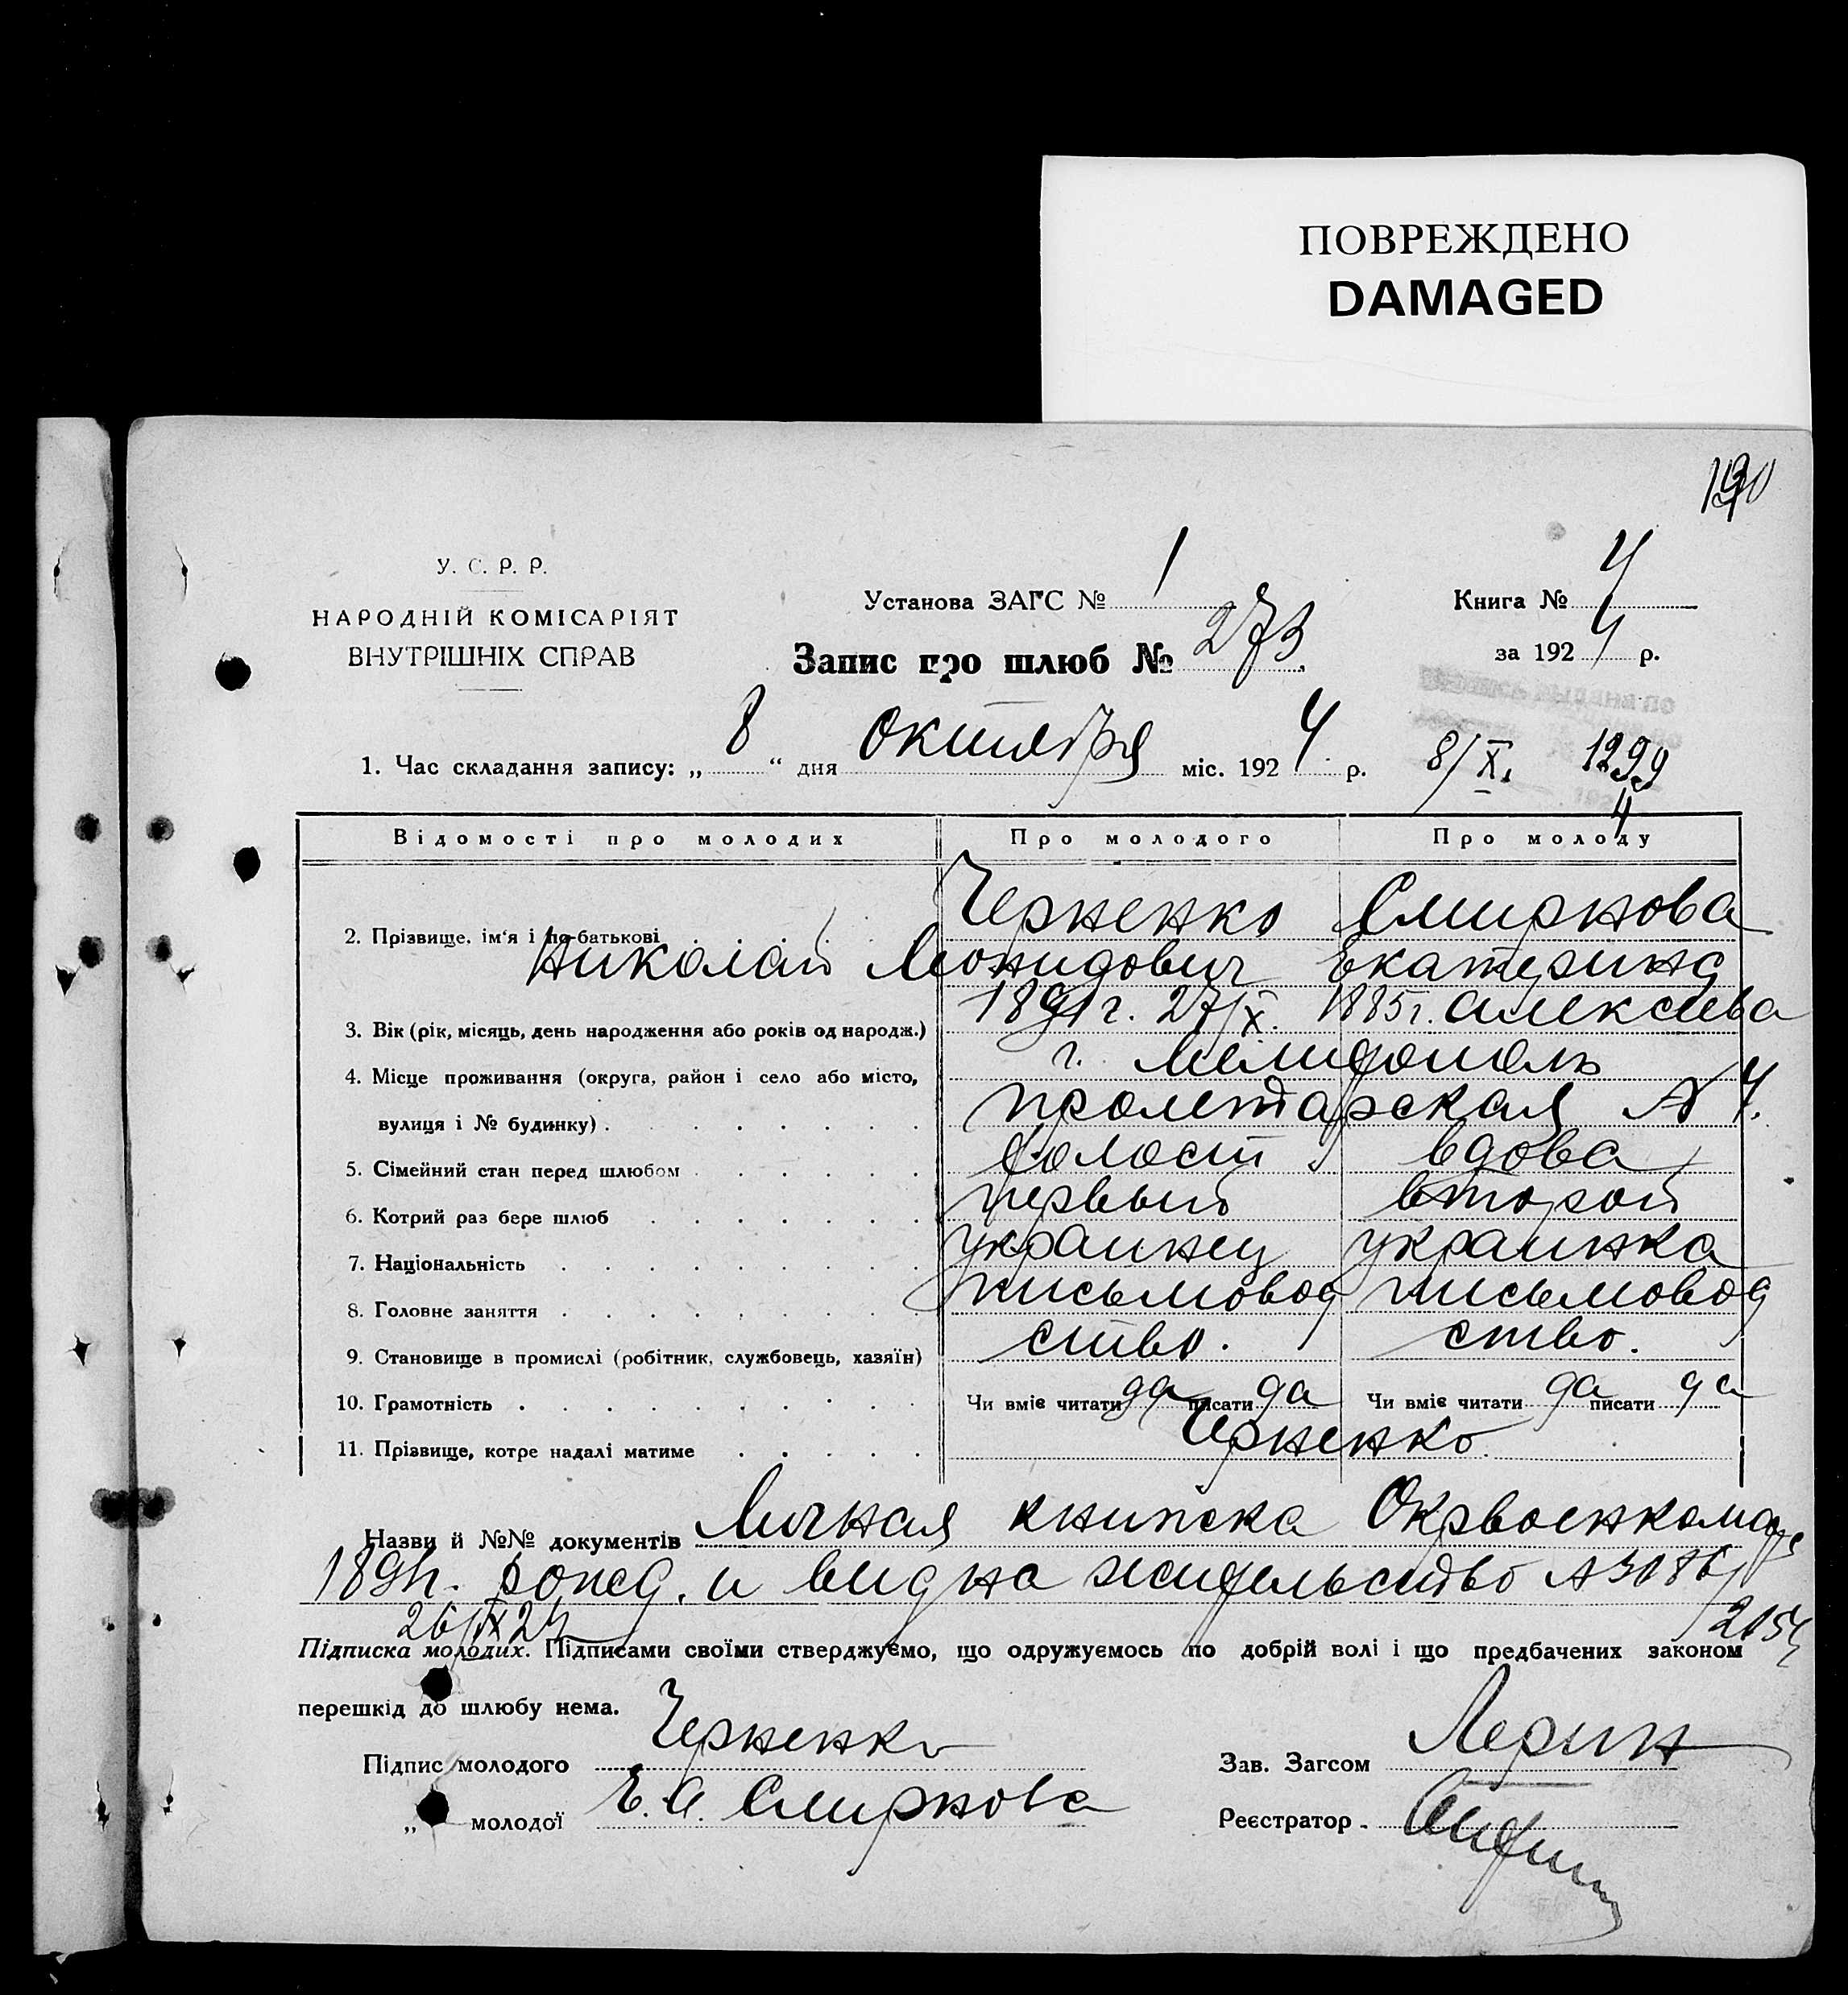 ПОВРЕЖДЕНО
DAMAGED
У. С. Р. Р.
НАРОДНІЙ КОМІСАРІЯТ
ВНУТРІШНІХ СПРАВ
Установа ЗАГС № 1
Книга № 4
Запис про шлюб № 273.
за 1924 р.
1. Час складання запису: „8“ дня октября міс. 1924 р.
8/X. 1299
4
Відомості про молодих Про молодого Про молоду
Черненко Смирнова
2. Прізвище, ім'я і по-батькові
Николай Леонидович Екатерина
1891 г. 27/X. 1885 г. Алексеева
3. Вік (рік, місяць, день народження або років од народж.)
г. Мелитополь
4. Місце проживання (округа, район і село або місто,
вулиця і № будинку) . Пролетарская № 4.
5. Сімейний стан перед шлюбом холост вдова
6. Котрий раз бере шлюб первый второй
7. Національність украинец украинка
8. Головне заняття письмовод письмовод
9. Становище в промислі (робітник, службовець, хазяїн) ство. ство.
10. Грамотність Чи вміє читати да писати да Чи вміє читати да писати да
11. Прізвище, котре надалі матиме Черненко
Назви й №№ документів Личная книжка Окрвоенкомата
1891 г. рожд. и вид на жительство № 3086/
26/IX 24 2154
Підписка молодих. Підписами своїми стверджуємо, що одружуємось по добрій волі і що предбачених законом
перешкід до шлюбу нема.
Підпис молодого Черненко
Зав. Загсом
„ молодої Е. А. Смирнова
Реєстратор